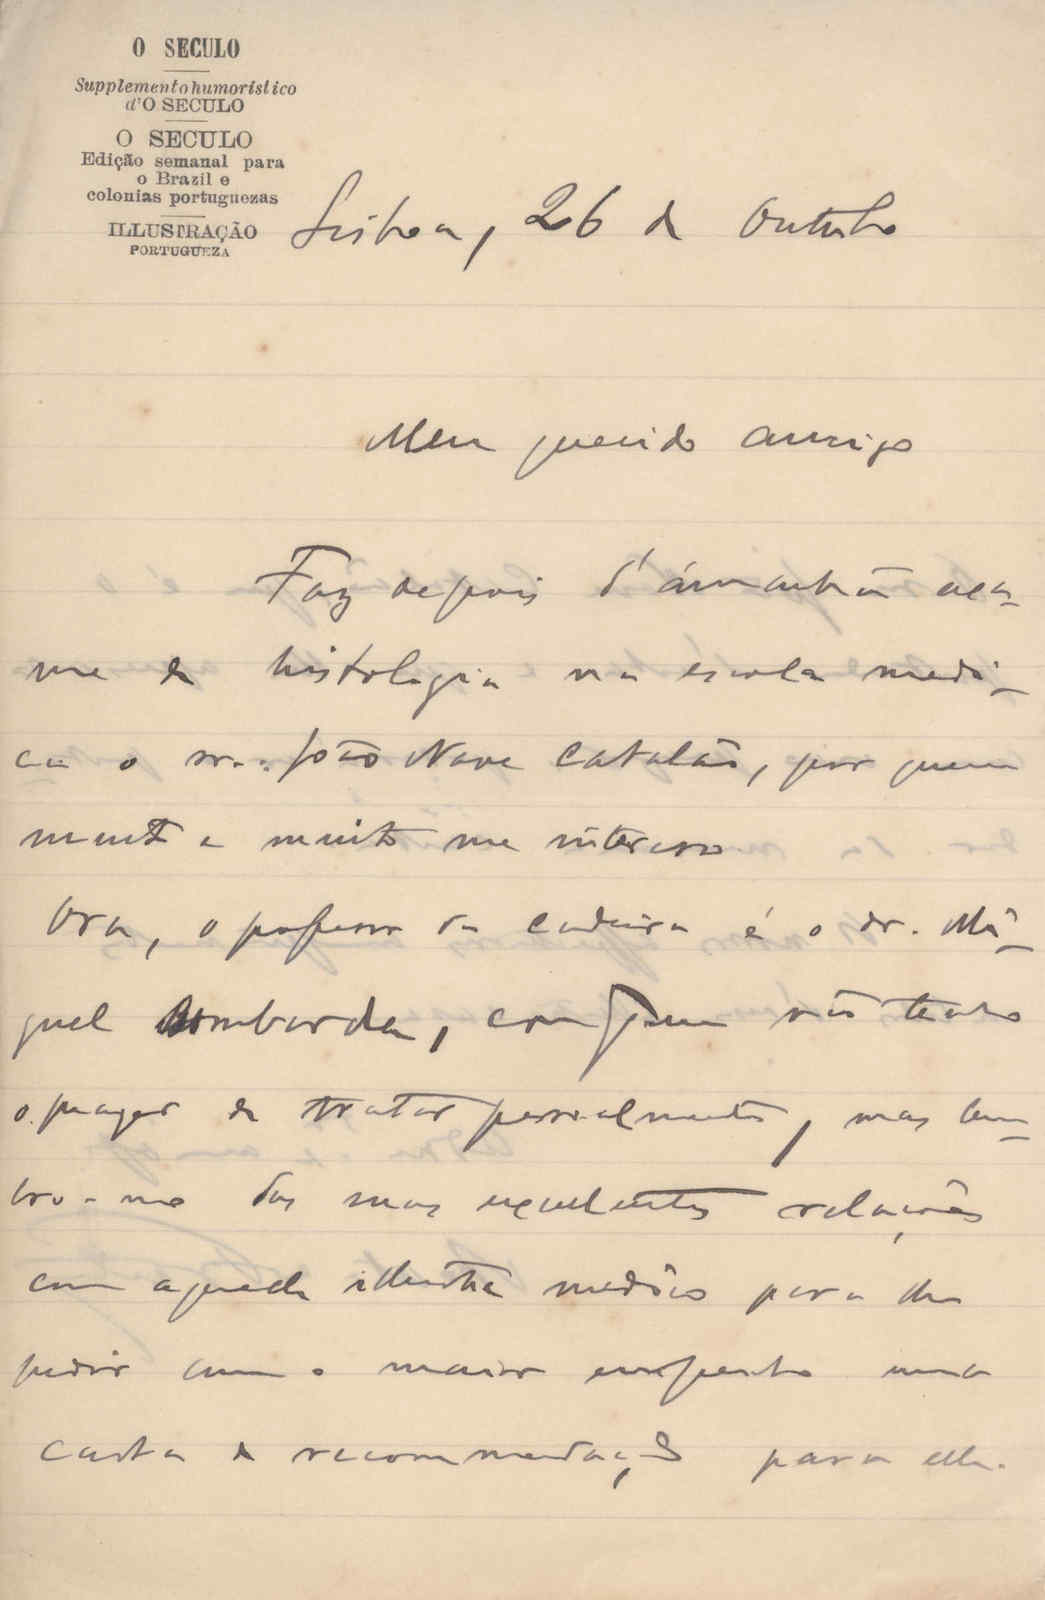 O SECULO
Supplemento humoristico
d'O SECULO
O SECULO
Edição semanal para
o Brazil e
colonias portuguezas
ILLUSTRAÇÃO
PORTUGUEZA
Lisboa, 26 de Outubro
Meu querido amigo
Faz depois d'ámanhã exa-
me de histologia na escola medi-
ca o sr. João Nave Catalão, por quem
muito e muito me interesso.
Ora, o professor da cadeira é o dr. Mi-
guel Bombarda, com quem não tenho
o prazer de tratar pessoalmente, mas lem-
bro-me das suas excellentes relações
com aquelle illustre medico para lhe
pedir com o maior empenho uma
carta de recommendação para elle.